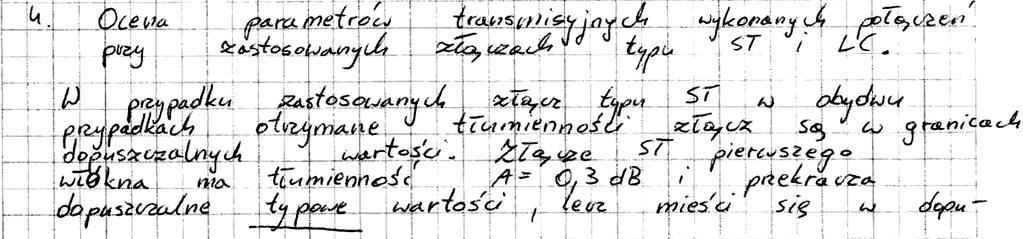 4. Ocena parametrów transmisyjnych wykonanych połączeń
przy zastosowanych złączach typu ST i LC.
W przypadku zastosowanych złącz typu ST w obydwu
przypadkach otrzymane tłumienności złącz są w granicach
dopuszczalnych wartości. Złącze ST pierwszego
włókna ma tłumienność A = 0,3 dB i przekracza
dopuszczalne typowe wartości, lecz mieści się w dopu-